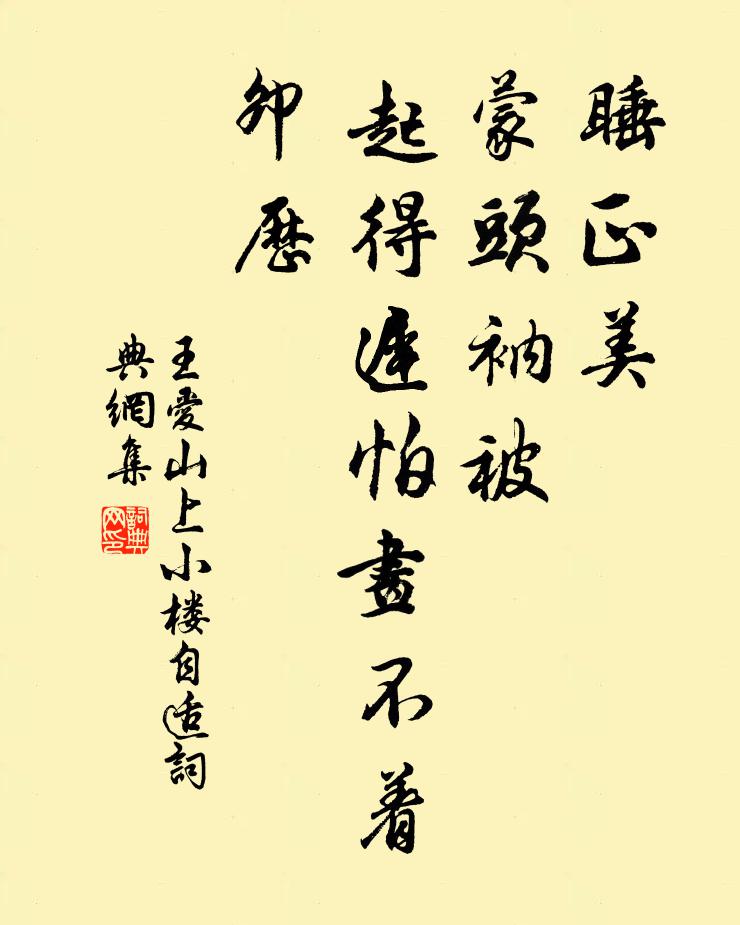 睡正美
蒙頭衲被
起得遲怕畫不着
卯歷
王愛山上小楼自适詞
典網集
詞典
网印